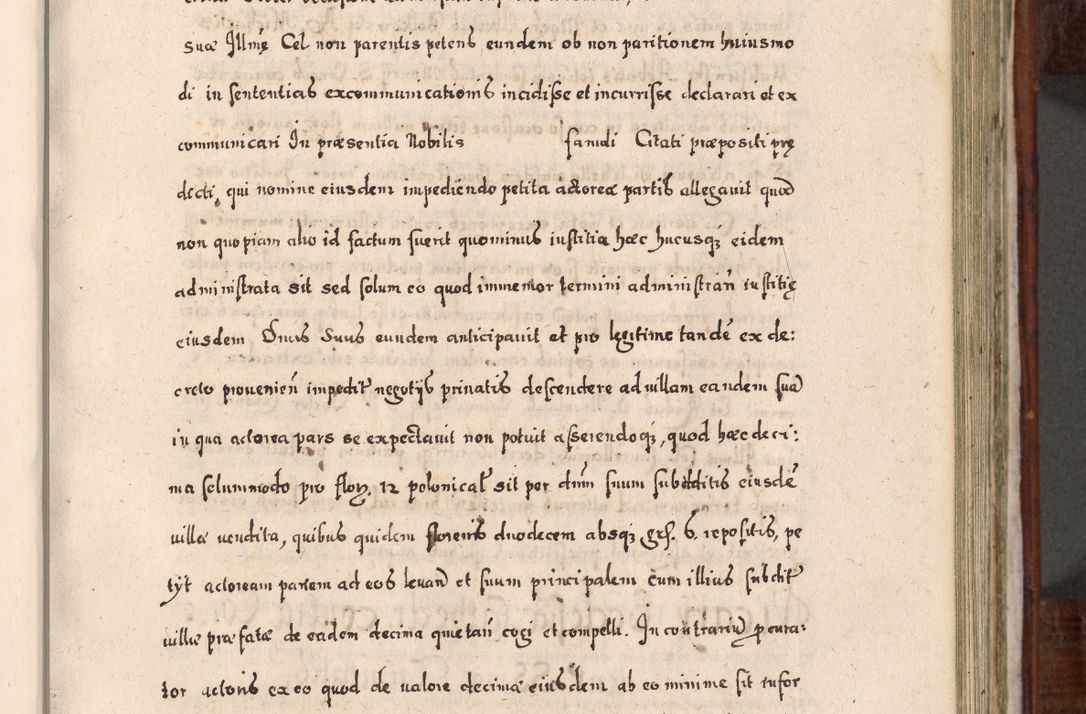 suæ Illmę Cel non parentis petens eundem ob non paritionem huiusmo
di in sententias excommunicationis incidisse et incurrisse declarari et ex
communicari In præsentia Nobilis famuli Citati præpositi prę
decti, qui nomine eiusdem impediendo petita actoreæ partis allegauit quod
non quopiam alio id factum fuerit quominus iustitia hæc hucusqȝ eidem
administrata sit sed solum eo quod immemor termini administran̄ iustitię
eiusdem Dnus Suus eundem anticipauit et pro legitime tandē ex de:
creto prouenien̄ impedit negotijs priuatis descendere ad uillam eandem suā
in qua actorea pars se expectauit non potuit asserendoqȝ, quod hæc deci:
ma solummodo pro flor. 12 polonical sit per dnm̄ suum subditis eiusdē
uillæ uendita, quibus quidem florenis duodecem absqȝ grs. 6. repositis, pe
tyt actoream partem ad eos leuan̄ et suum principalem cum illius subdit
uillæ præfatæ de eadem decima quietan̄ cogi et compelli. In contrariū procura:
tor actoris ex eo quod de ualore decimæ eiusdem ab eo minime sit infor